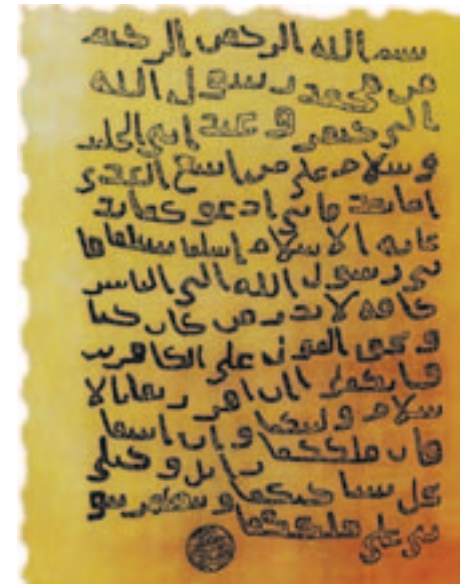 بسم الله الرحمن الرحيم
من محمد رسول الله
الى جيفر و عبد ابني الجلند
وسلام على من اتبع الهدى
اما بعد فاني ادعوكما بد
عاية الاسلام اسلما تسلما فا
ني رسول الله الى الناس
كافة لانذر من كان حيا
و يحق القول على الكافرين
فانكما ان اقررتما بالا
سلام وليتكما وان ابيتما
فان ملككما زائل وخيلي
تحل بساحتكما وتظهر نبو
تي على ملككما